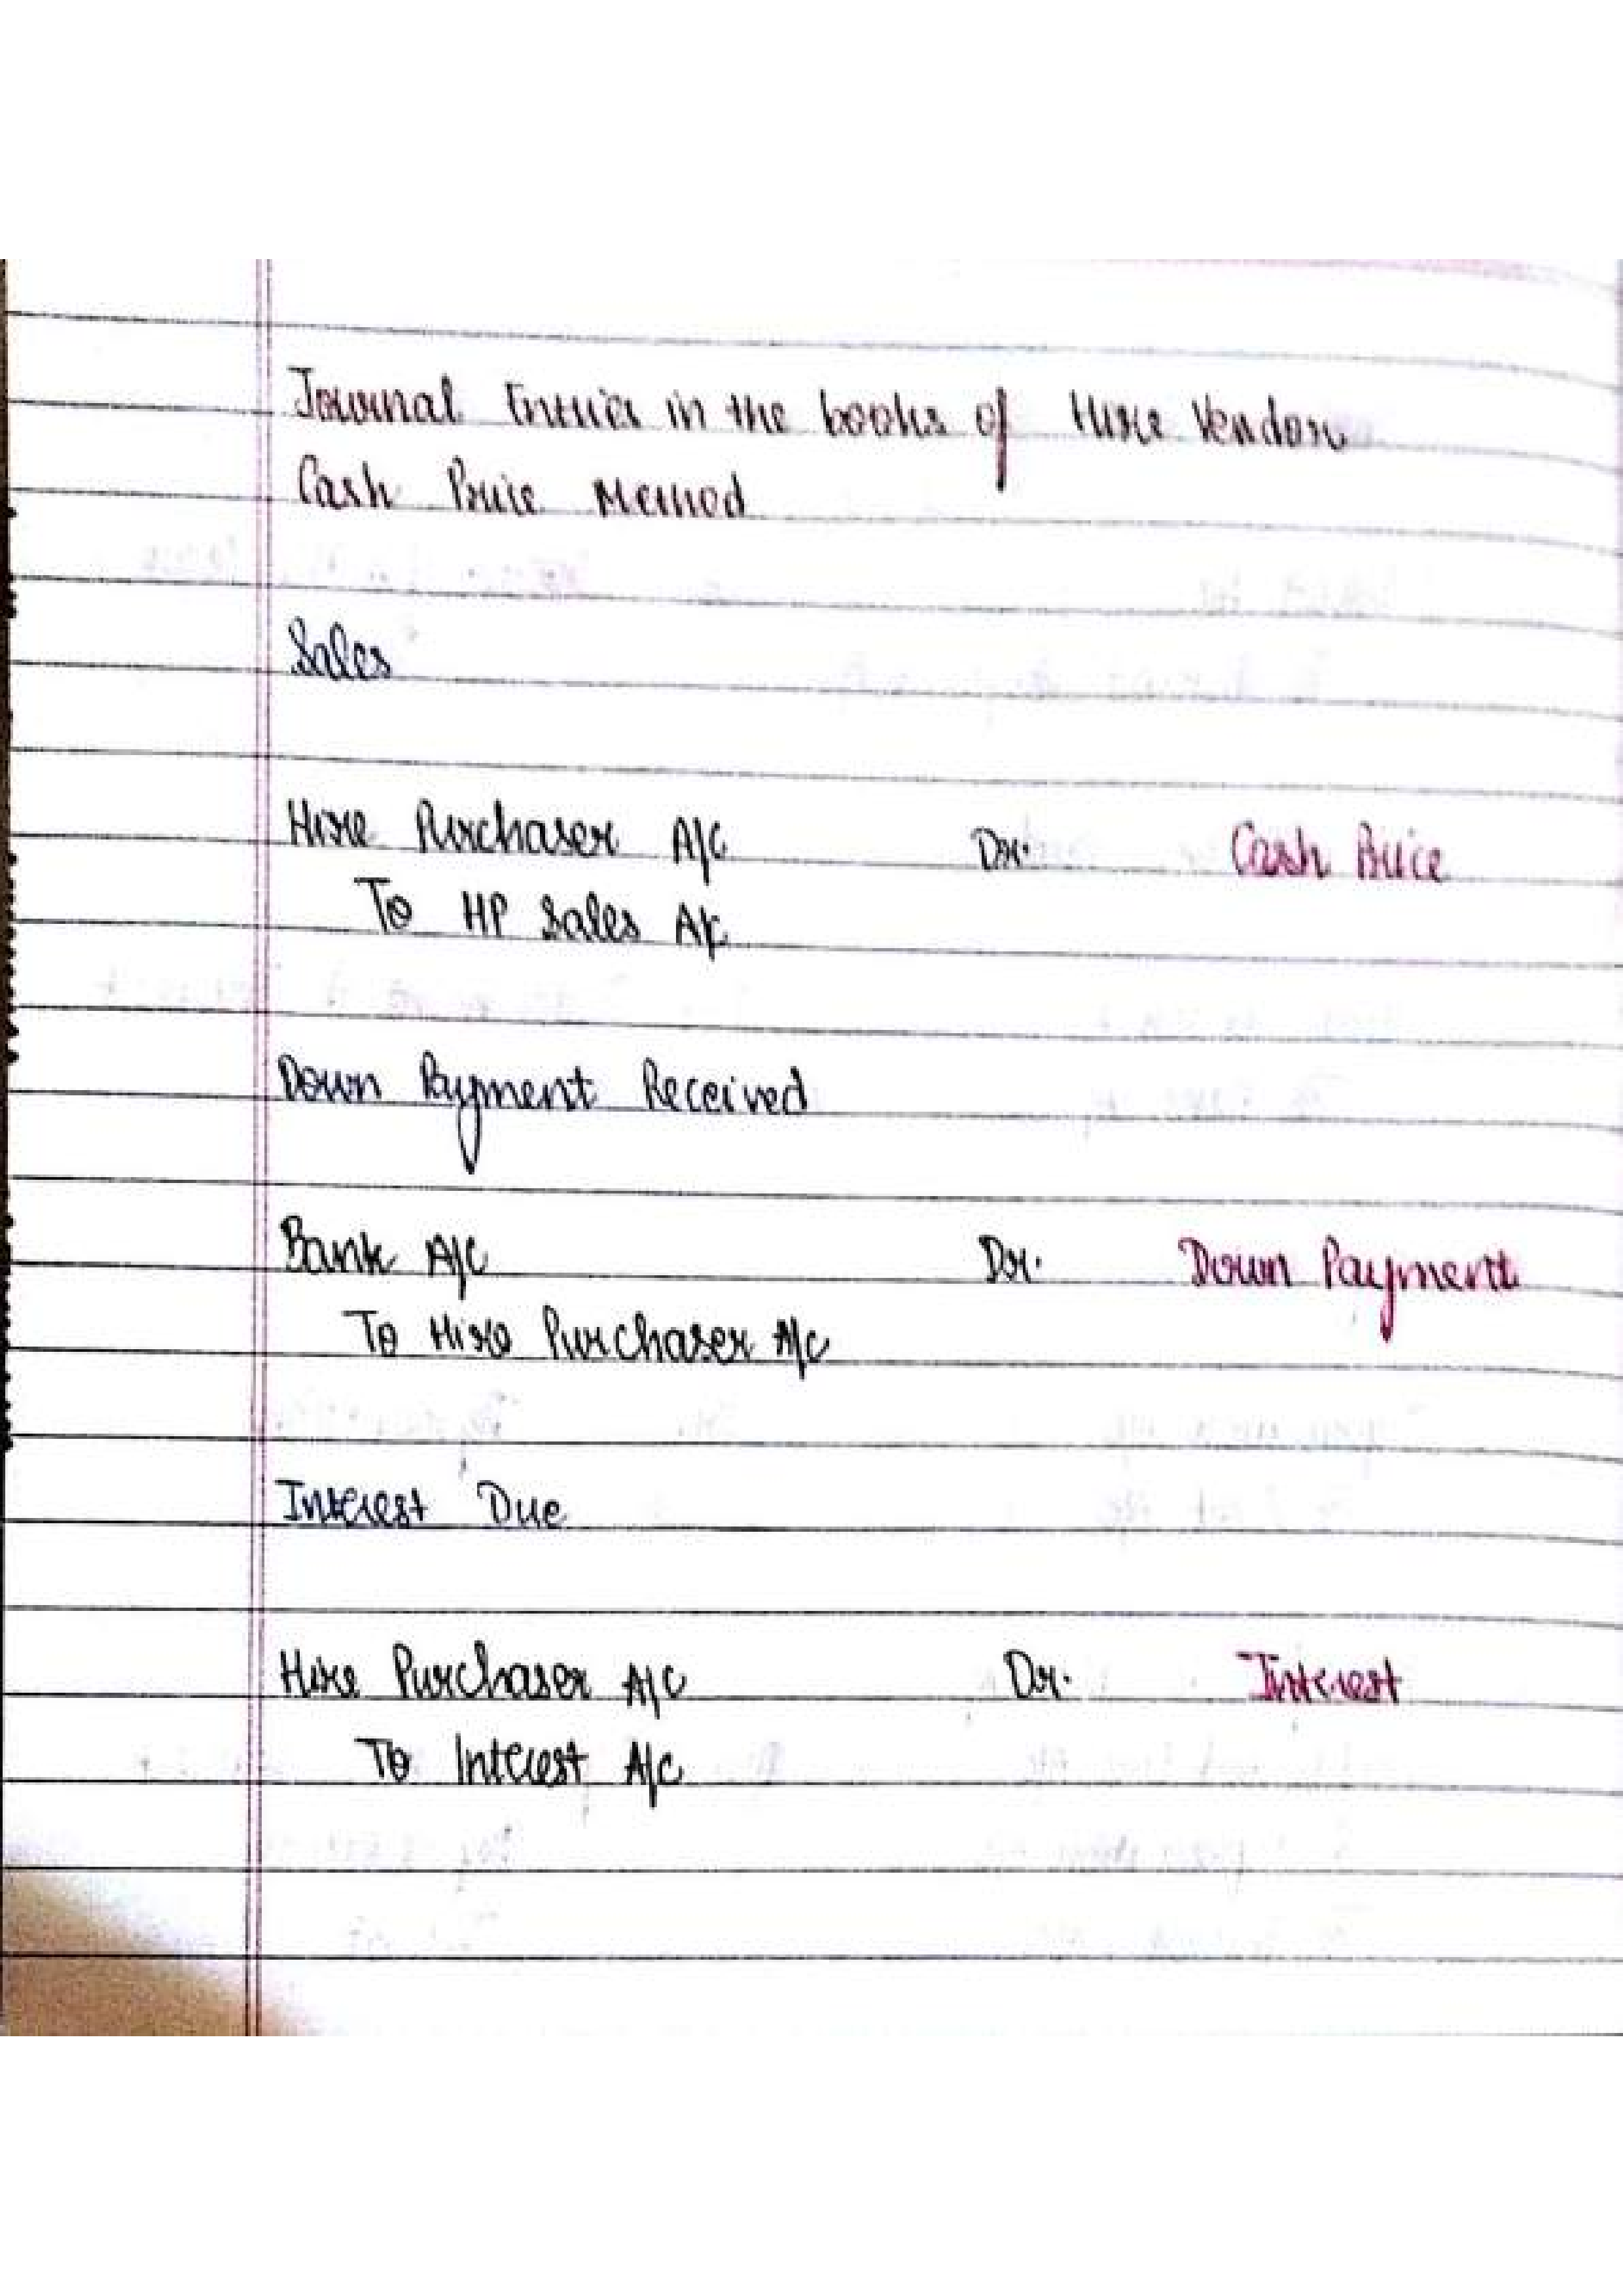 Journal Entries in the books of Hire Vendor
Cash Price Method
Sales
Hire Purchaser A/c Dr. Cash Price
To HP Sales A/c
Down Payment Received
Bank A/c Dr. Down Payment
To Hire Purchaser A/c
Interest Due
Hire Purchaser A/c Dr. Interest
To Interest A/c